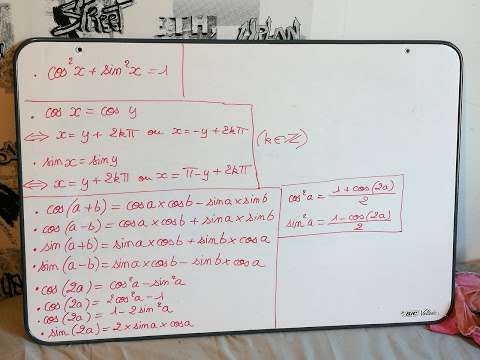 • cos²x + sin²x = 1
• cos x = cos y
⇔ x = y + 2kπ ou x = -y + 2kπ
(k ∈ ℤ)
• sin x = sin y
⇔ x = y + 2kπ ou x = π - y + 2kπ
• cos(a+b) = cos a × cos b - sin a × sin b
• cos(a-b) = cos a × cos b + sin a × sin b
• sin(a+b) = sin a × cos b + sin b × cos a
• sin(a-b) = sin a × cos b - sin b × cos a
• cos(2a) = cos²a - sin²a
• cos(2a) = 2cos²a - 1
• cos(2a) = 1 - 2sin²a
• sin(2a) = 2 × sin a × cos a
cos²a = (1 + cos(2a))/2
sin²a = (1 - cos(2a))/2
BIC Velleda